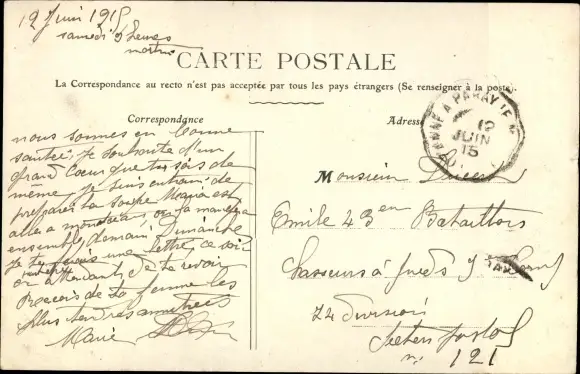 12 Juin 1915
samedi 9 heures
matin
CARTE POSTALE
La Correspondance au recto n'est pas acceptée par tous les pays étrangers (Se renseigner à la poste).
Correspondance
Adresse
12
JUIN
15
nous sommes en bonne
santé. Je souhaite d'un
grand Cœur que tu sois de
même je suis entrain de
préparer la soupe Maria est
allé a on la mangera
ensemble demain Dimanche
je te ferais une lettre, ce soir
en attendant de te revoir
Recois de ta femme les
plus tendres amitiés
Marie
Monsieur
Emile 43 en Bataillons
Chasseurs à pieds
74 division
Secteur postal
n. 121